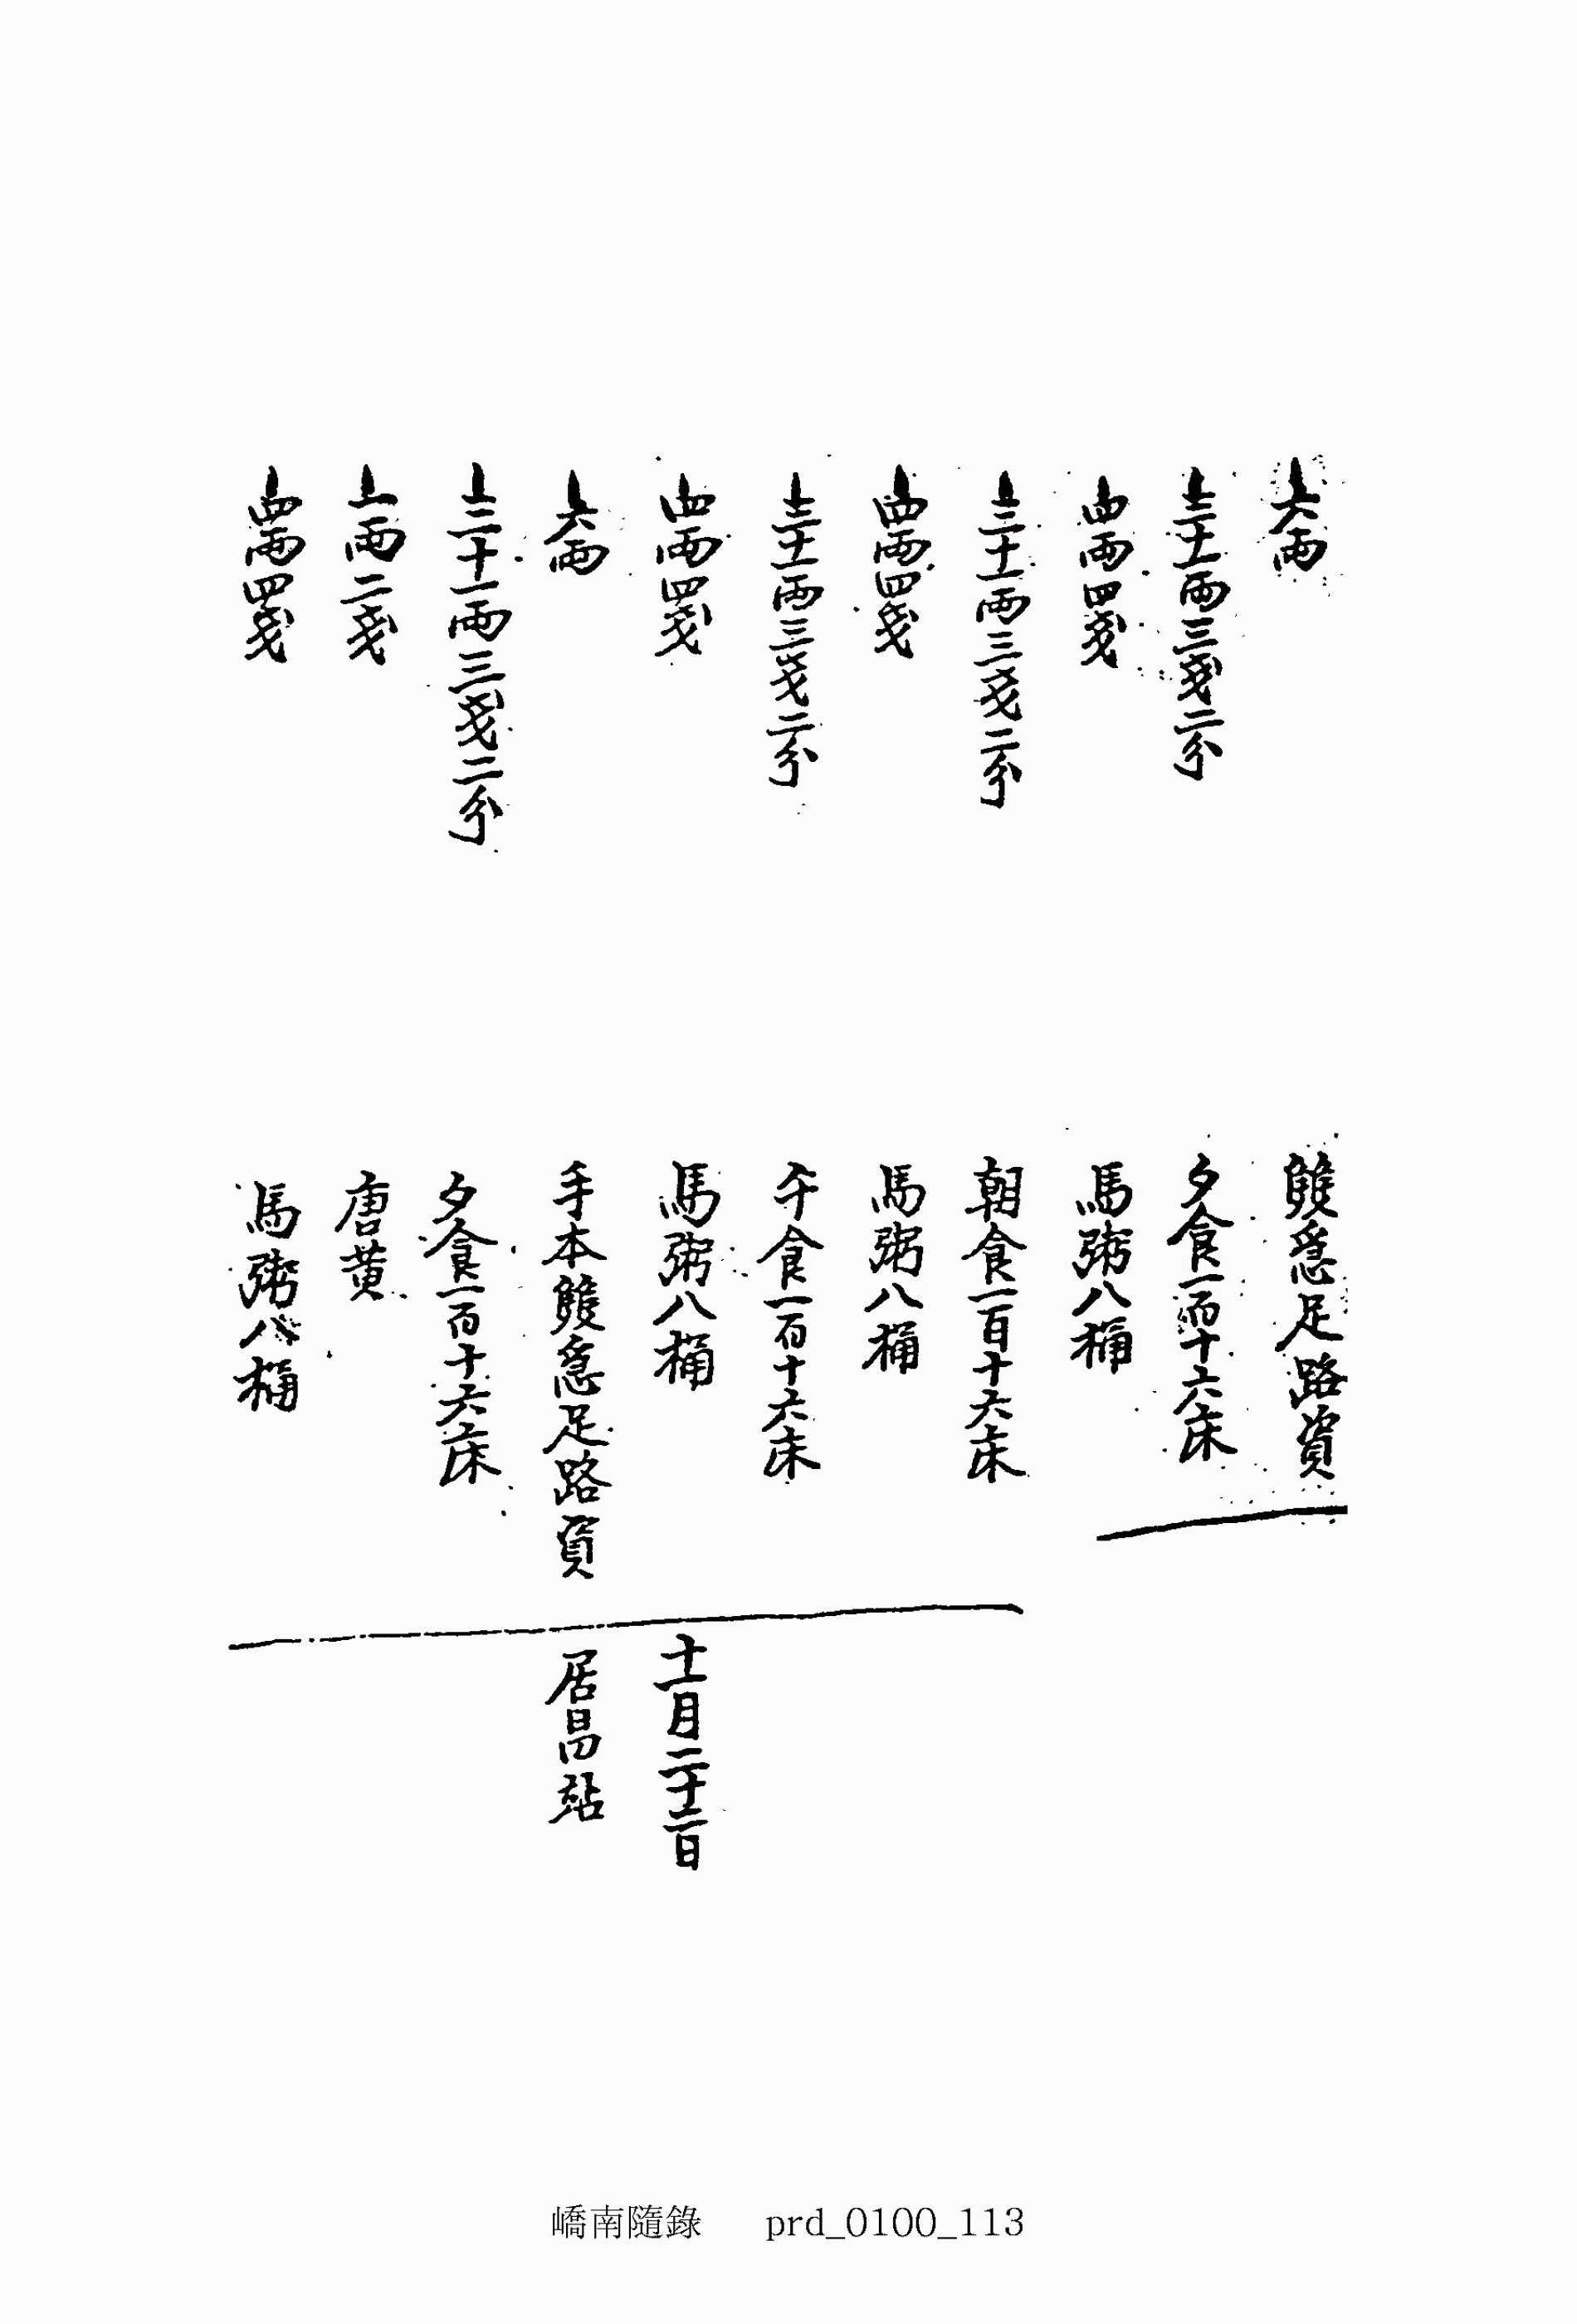 上六兩
雙急足路資
上三十一兩三戔二分
夕食一百十六床
上四兩四戔
馬粥八桶
上三十一兩三戔二分
朝食一百十六床
上四兩四戔
馬粥八桶
上三十一兩三戔二分
午食一百十六床
上四兩四戔
馬粥八桶
十一月二十二日
上六兩
手本雙急足路資
居昌站
上三十一兩三戔二分
夕食一百十六床
上一兩二戔
唐黃
上四兩四戔
馬粥八桶
嶠南隨錄 prd_0100_113